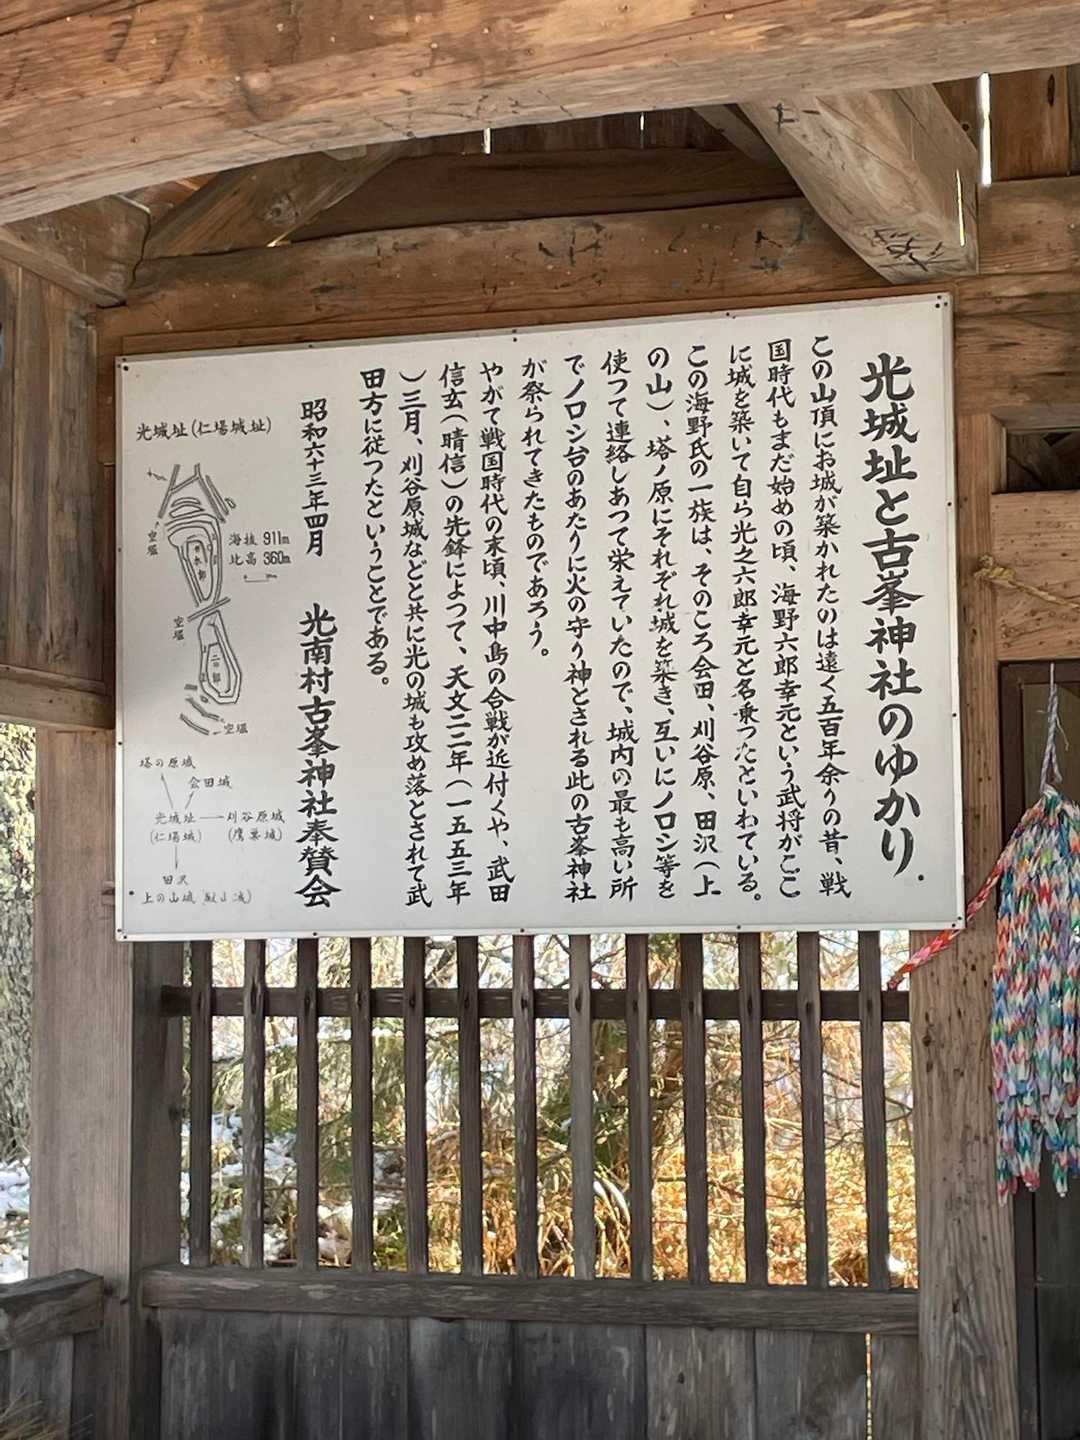 光城址と古峯神社のゆかり.
この山頂にお城が築かれたのは遠く五百年余りの昔、戦
国時代もまだ始めの頃、海野六郎幸元という武将がここ
に城を築いて自ら光之六郎幸元と名乗つたといわている。
この海野氏の一族は、そのころ会田、刈谷原、田沢(上
の山)、塔ノ原にそれぞれ城を築き、互いにノロシ等を
使つて連絡しあつて栄えていたので、城内の最も高い所
でノロシ台のあたりに火の守り神とされる此の古峯神社
が祭られてきたものであろう。
やがて戦国時代の末頃、川中島の合戦が近付くや、武田
信玄(晴信)の先鋒によつて、天文二二年(一五五三年
)三月、刈谷原城などと共に光の城も攻め落とされて武
田方に従つたということである。
昭和六十三年四月 光南村古峯神社奉賛会
光城址(仁場城址)
空堀
海抜 911m
比高 360m
本郭
空堀
二の郭
空堀
塔の原城
会田城
光城址
(仁場城)
刈谷原城
(鷹巣城)
田沢
上の山城